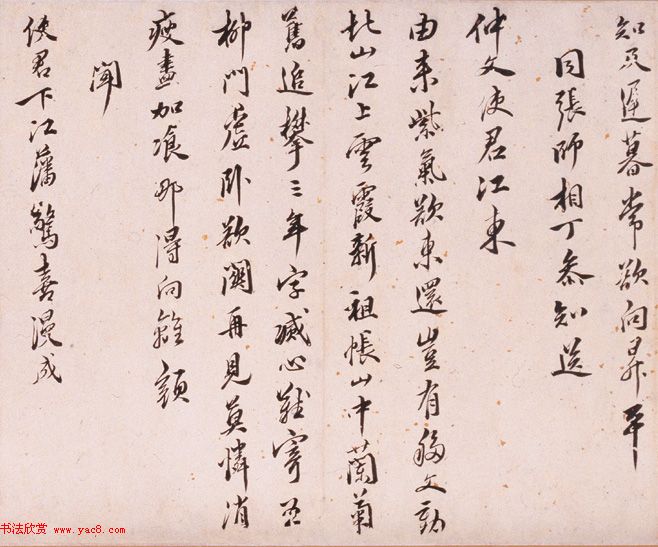 知足遲暮常欲向昇平
同張師相丁參知送
仲文使君江東
由來紫氣欲東還豈有移文勒
北山江上雲霞新祖帳山中蘭菊
舊追攀三年字滅心難寄五
柳門虛臥欲關再見莫憐消
瘦盡加飡那得向離顏
聞
使君下江藩驚喜漫成
书法欣赏 www.yac8.com